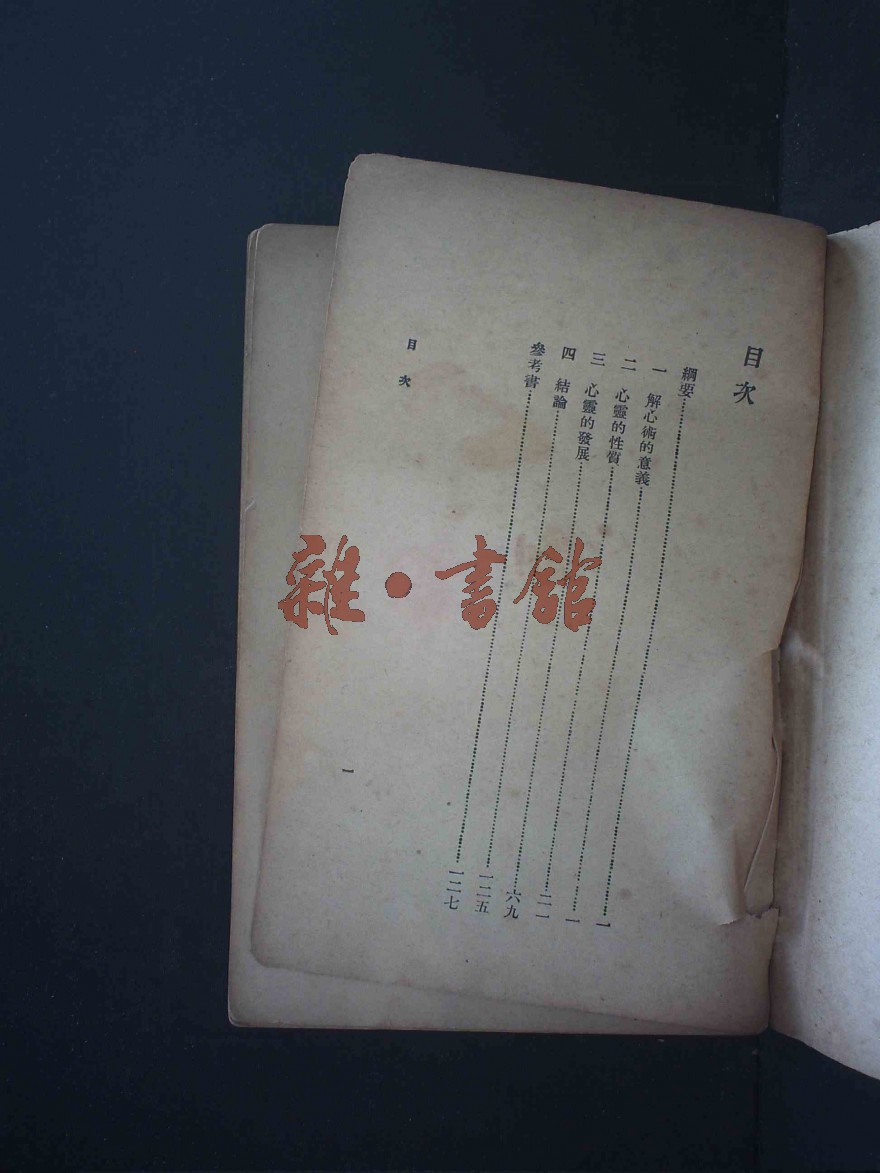 目次
綱要……一
一 解心術的意義……一
二 心靈的性質……二一
三 心靈的發展……六九
四 結論……一二五
參考書……一二七
目次
一
雜·書館